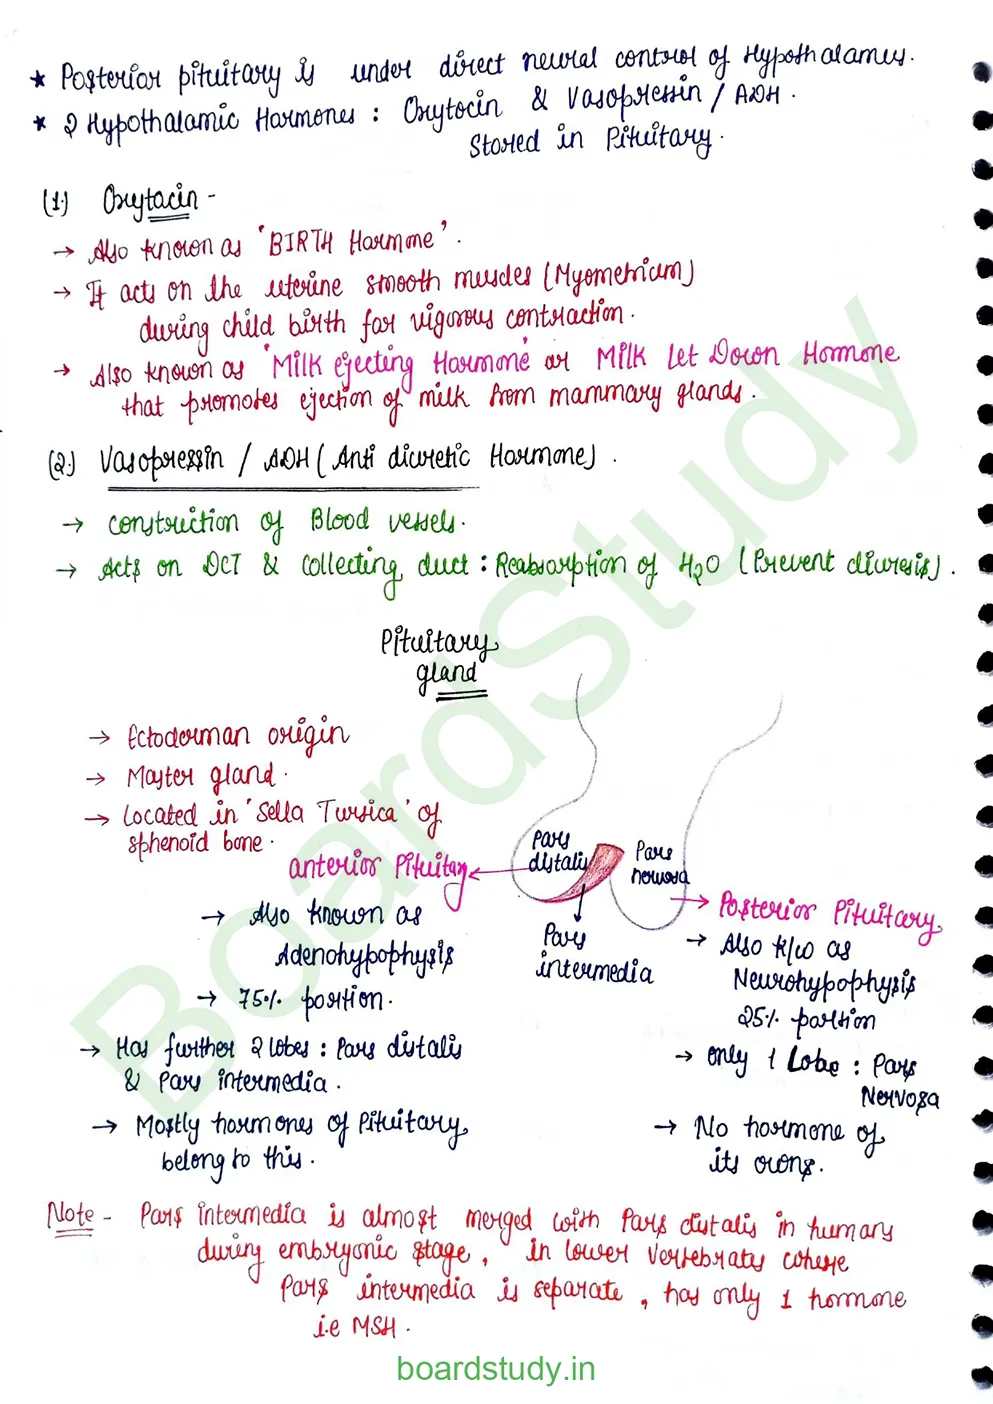 * Posterior pituitary is under direct neural control of Hypothalamus.
* 2 Hypothalamic Hormones : Oxytocin & Vasopressin / ADH .
Stored in Pituitary.
(1.) Oxytacin -
→ Also known as 'BIRTH Hormone' .
→ It acts on the uterine smooth muscles (Myometrium)
during child birth for vigorous contraction.
→ Also known as 'Milk ejecting Hormone' or Milk Let Down Hormone
that promotes ejection of milk from mammary glands.
(2.) Vasopressin / ADH ( Anti diuretic Hormone) .
→ construction of Blood vessels.
→ Acts on DCT & Collecting duct : Reabsorption of H₂O (Prevent diuresis) .
Pituitary
gland
→ Ectoderman origin
→ Master gland .
→ Located in 'Sella Tursica' of
sphenoid bone .
Pars
distalis
Pars
nervosa
Pars
intermedia
anterior Pituitary
→ Also known as
Adenohypophysis
→ 75% portion .
→ Has further 2 lobes : Pars distalis
& Pars intermedia .
→ Mostly hormones of Pituitary
belong to this .
→ Posterior Pituitary
→ Also k/w as
Neurohypophysis
25% portion
→ only 1 Lobe : Pars
Nervosa
→ No hormone of
its owns .
Note - Pars intermedia is almost merged with Pars distalis in humans
during embryonic stage , in lower vertebrates where
Pars intermedia is separate , has only 1 hormone
i.e MSH .
BoardStudy
boardstudy.in